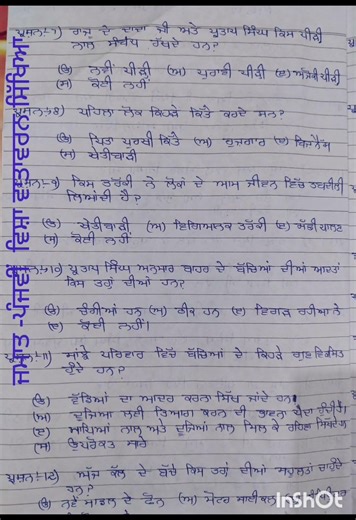 ਜਮਾਤ-ਪੰਜਵੀਂ ਵਿਸ਼ਾ ਵਾਤਾਵਰਨ ਸਿੱਖਿਆ
ਪ੍ਰਸ਼ਨ:-7) ਰਾਜੂ ਦੇ ਦਾਦਾ ਜੀ ਅਤੇ ਪ੍ਰਤਾਪ ਸਿੰਘ ਕਿਸ ਪੀੜੀ
ਨਾਲ ਸੰਬੰਧ ਰੱਖਦੇ ਹਨ?
(ੳ) ਨਵੀਂ ਪੀੜੀ (ਅ) ਪੁਰਾਣੀ ਪੀੜੀ (ੲ) ਅੱਜਕੀ ਪੀੜੀ
(ਸ) ਕੋਈ ਨਹੀਂ
ਪ੍ਰਸ਼ਨ:-8) ਪਹਿਲਾ ਲੋਕ ਕਿਹੜੇ ਕਿੱਤੇ ਕਰਦੇ ਸਨ?
(ੳ) ਪਿਤਾ ਪੁਰਖੀ ਕਿੱਤੇ (ਅ) ਰੁਜਗਾਰ (ੲ) ਬਿਜਨੈੱਸ
(ਸ) ਖੇਤੀਬਾੜੀ
ਪ੍ਰਸ਼ਨ:-9) ਕਿਸ ਤਰੱਕੀ ਨੇ ਲੋਕਾਂ ਦੇ ਆਮ ਜੀਵਨ ਵਿੱਚ ਤਬਦੀਲੀ
ਲਿਆਂਦੀ ਹੈ?
(ੳ) ਖੇਤੀਬਾੜੀ (ਅ) ਵਿਗਿਆਨਕ ਤਰੱਕੀ (ੲ) ਮੱਛੀ ਪਾਲਣ
(ਸ) ਕੋਈ ਨਹੀਂ
ਪ੍ਰਸ਼ਨ:-10) ਪ੍ਰਤਾਪ ਸਿੰਘ ਅਨੁਸਾਰ ਬਾਹਰ ਦੇ ਬੱਚਿਆਂ ਦੀਆਂ ਆਦਤਾਂ
ਕਿਸ ਤਰ੍ਹਾਂ ਦੀਆਂ ਹਨ?
(ੳ) ਚੰਗੀਆਂ ਹਨ (ਅ) ਠੀਕ ਹਨ (ੲ) ਵਿਗੜ ਰਹੀਆ ਨੇ
(ੲ) ਕੋਈ ਨਹੀਂ।
ਪ੍ਰਸ਼ਨ:-11) ਸਾਂਝੇ ਪਰਿਵਾਰ ਵਿੱਚ ਬੱਚਿਆਂ ਦੇ ਕਿਹੜੇ ਗੁਣ ਵਿਕਸਿਤ
ਹੁੰਦੇ ਹਨ?
(ੳ) ਵੱਡਿਆਂ ਦਾ ਆਦਰ ਕਰਨਾ ਸਿੱਖ ਜਾਂਦੇ ਹਨ।
(ਅ) ਦੂਜਿਆ ਲਈ ਤਿਆਗ ਕਰਨ ਦੀ ਭਾਵਨਾ ਪੈਦਾ ਹੁੰਦੀ ਹੈ।
(ੲ) ਸਾਥਿਆਂ ਨਾਲ ਅਤੇ ਦੂਜਿਆਂ ਨਾਲ ਮਿਲ ਕੇ ਰਹਿਣਾ
(ਸ) ਉਪਰੋਕਤ ਸਾਰੇ
ਪ੍ਰਸ਼ਨ:-12) ਅੱਜ ਕੱਲ ਦੇ ਬੱਚੇ ਕਿਸ ਤਰ੍ਹਾਂ ਦੀਆਂ ਸਹੂਲਤਾਂ ਚਾਹੁੰਦੇ
ਹਨ?
(ੳ) ਨਵੇਂ ਮਾਡਲ ਦੇ ਫੋਨ (ਅ) ਮੋਟਰ ਸਾਈਕਲ
InShOt